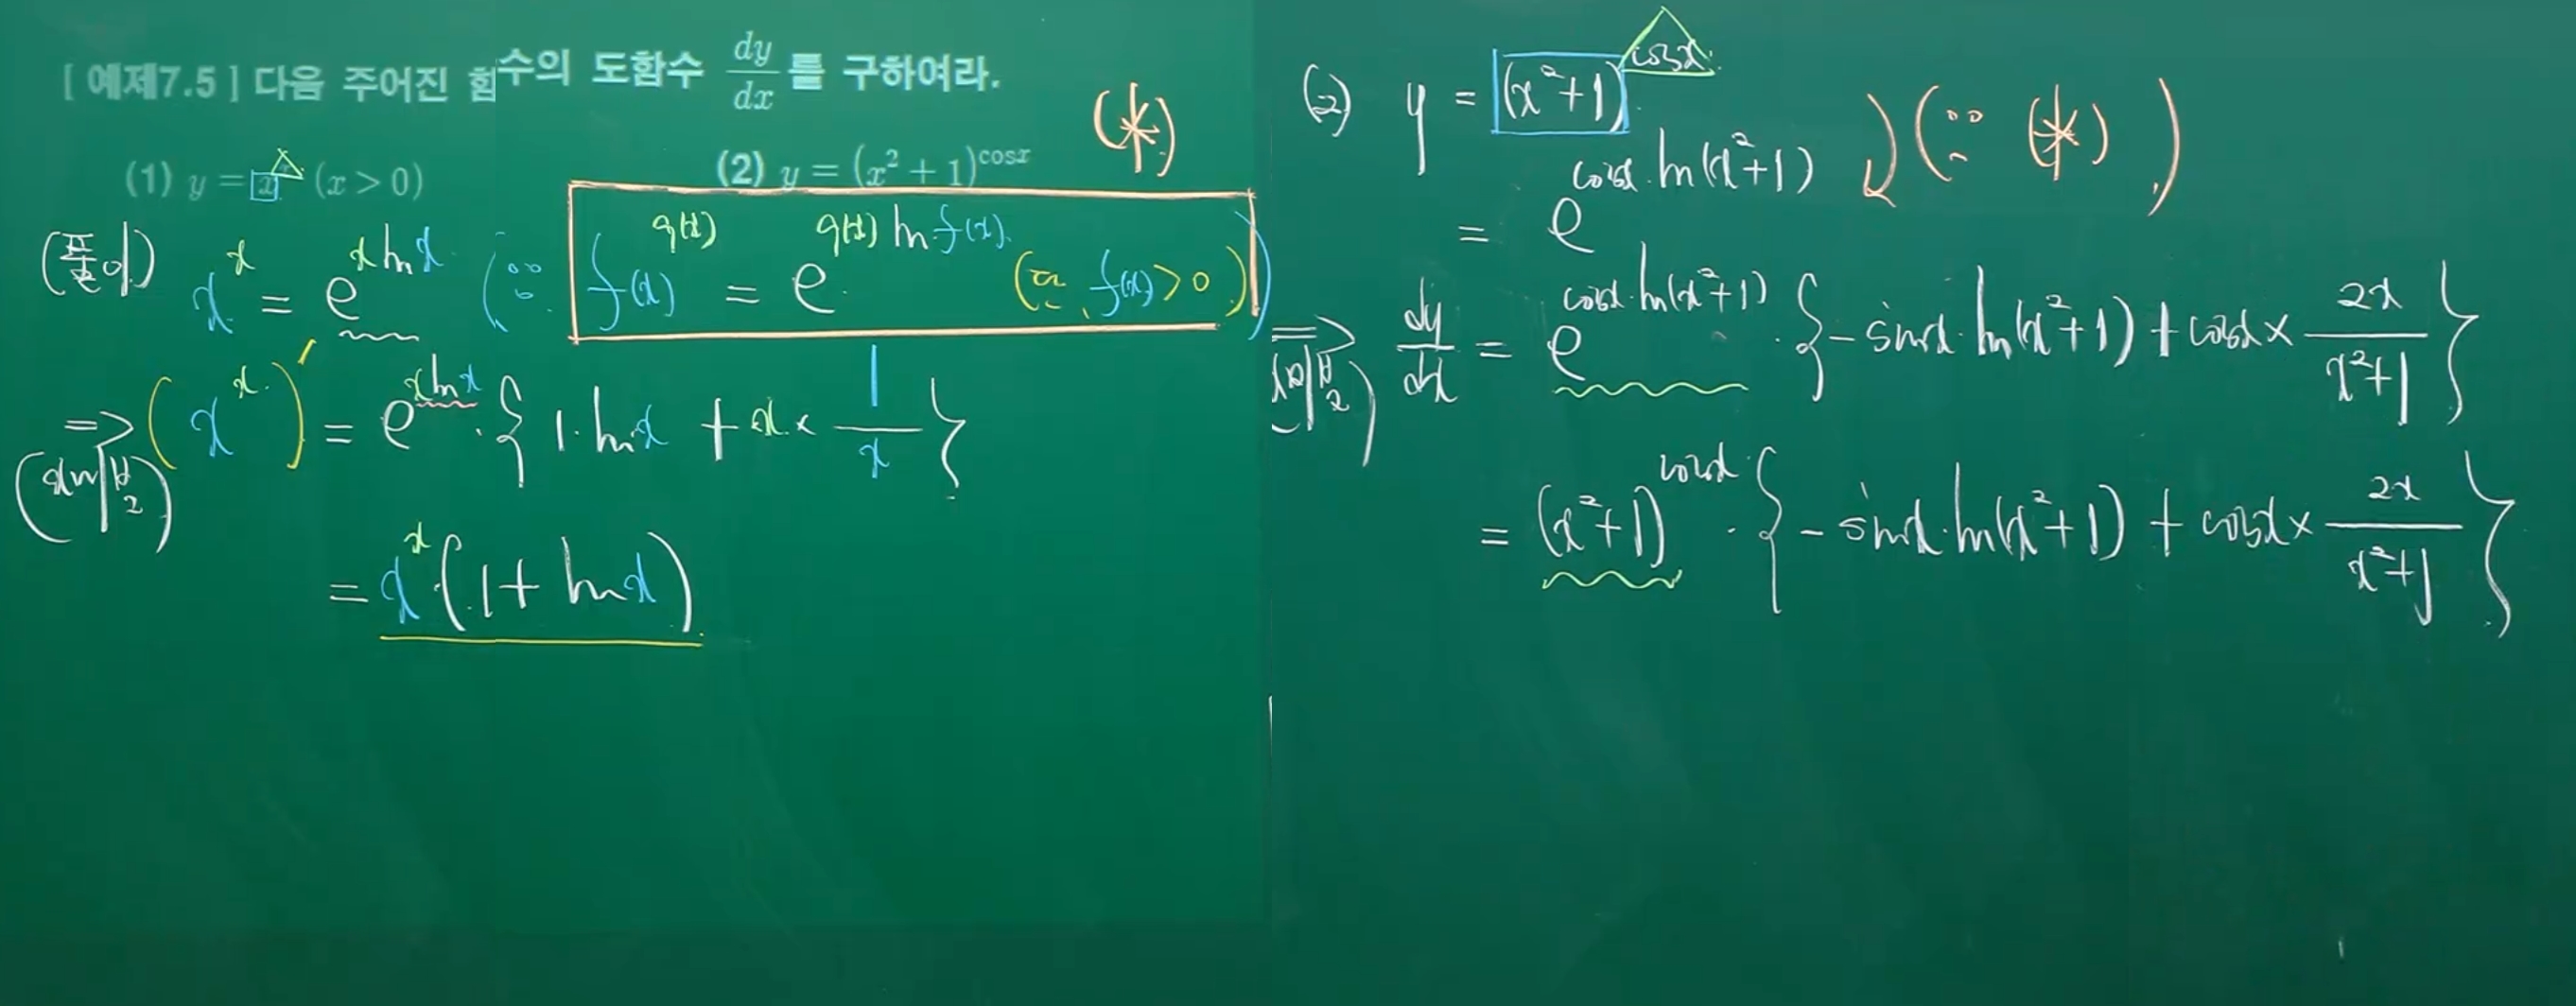 [ 예제7.5 ] 다음 주어진 함수의 도함수 dy/dx 를 구하여라.
(1) y = x^x (x > 0)
(2) y = (x² + 1)^cosx
(*)
(풀이) x^x = e^(x ln x) (∵ f(x)^g(x) = e^(g(x) ln f(x)) (단, f(x) > 0))
⇒ (x^x)' = e^(x ln x) · { 1 · ln x + x × 1/x }
= x^x (1 + ln x)
(2) y = (x² + 1)^cosx
= e^(cosx · ln(x² + 1)) (∵ (*))
⇒ dy/dx = e^(cosx · ln(x² + 1)) · { - sinx · ln(x² + 1) + cosx × 2x/(x² + 1) }
= (x² + 1)^cosx · { - sinx · ln(x² + 1) + cosx × 2x/(x² + 1) }